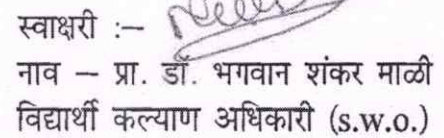 स्वाक्षरी :–
नाव – प्रा. डॉ. भगवान शंकर माळी
विद्यार्थी कल्याण अधिकारी (s.w.o.)